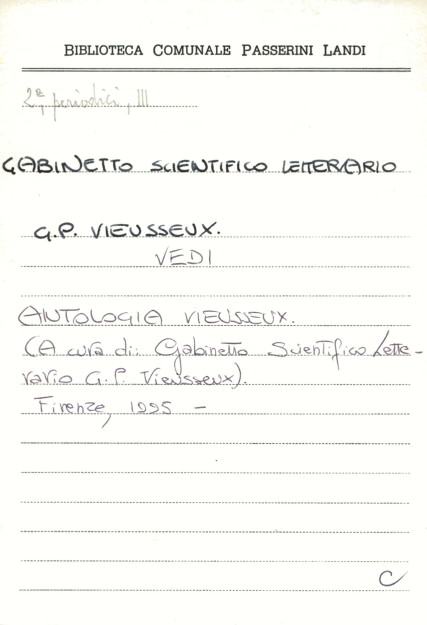 BIBLIOTECA COMUNALE PASSERINI LANDI
2ª, periodici, III
GABINETTO SCIENTIFICO LETTERARIO
G.P. VIEUSSEUX.
VEDI
ANTOLOGIA VIEUSSEUX.
(A cura di: Gabinetto Scientifico Lette-
rario G.P. Vieusseux).
Firenze, 1995 -
C